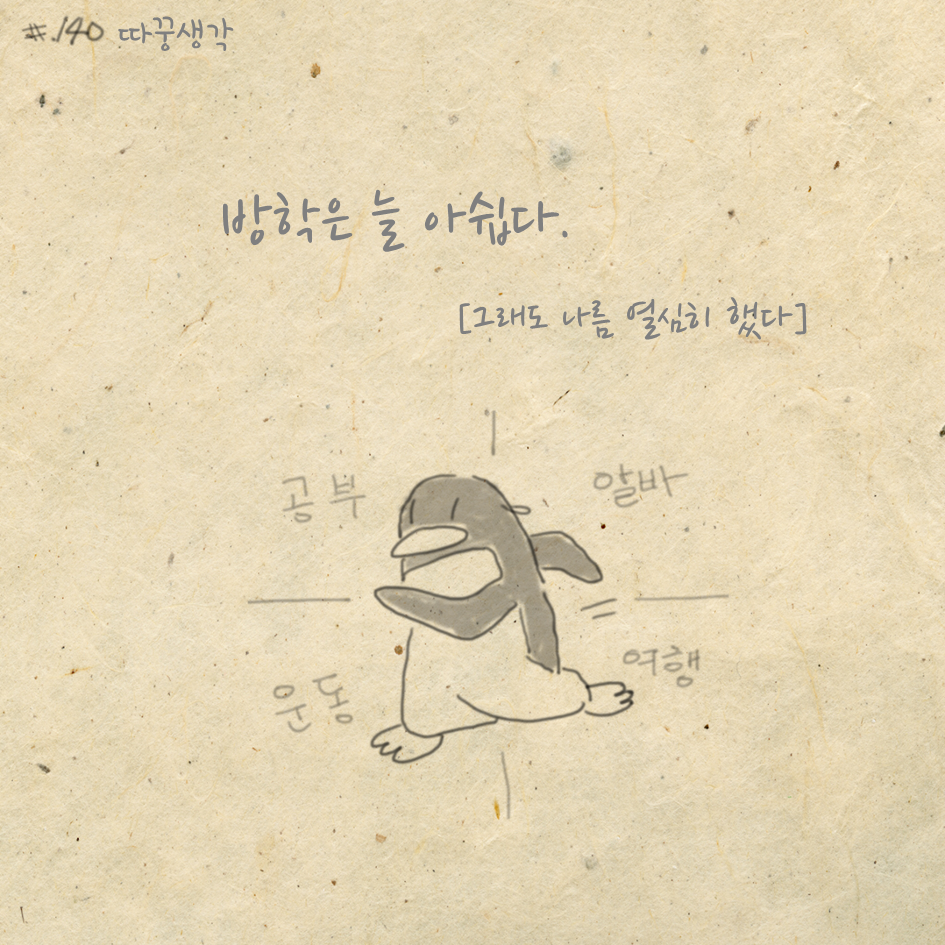 #.140 따꿍생각
방학은 늘 아쉽다.
[그래도 나름 열심히 했다]
공부
알바
운동
여행